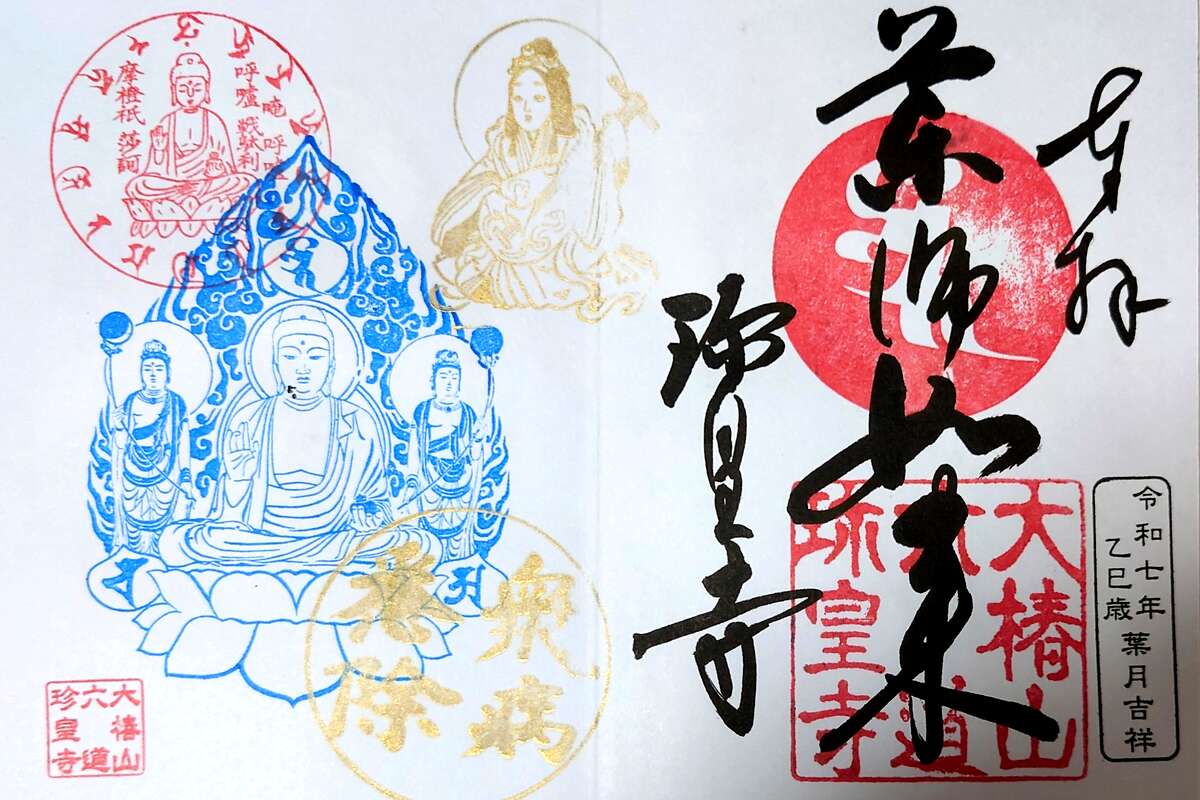 奉拝
薬師如来
珍皇寺
大椿山
六道
珍皇寺
令和七年
乙巳歳
葉月吉祥
呼嚧
戦駄利
摩橙祇
莎訶
衆病
悉除
大椿山
六道
珍皇寺